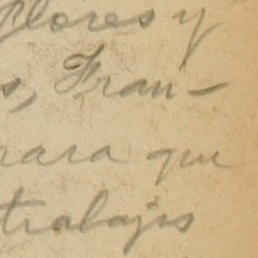 flores y
s, Fran-
rara que
trabajos